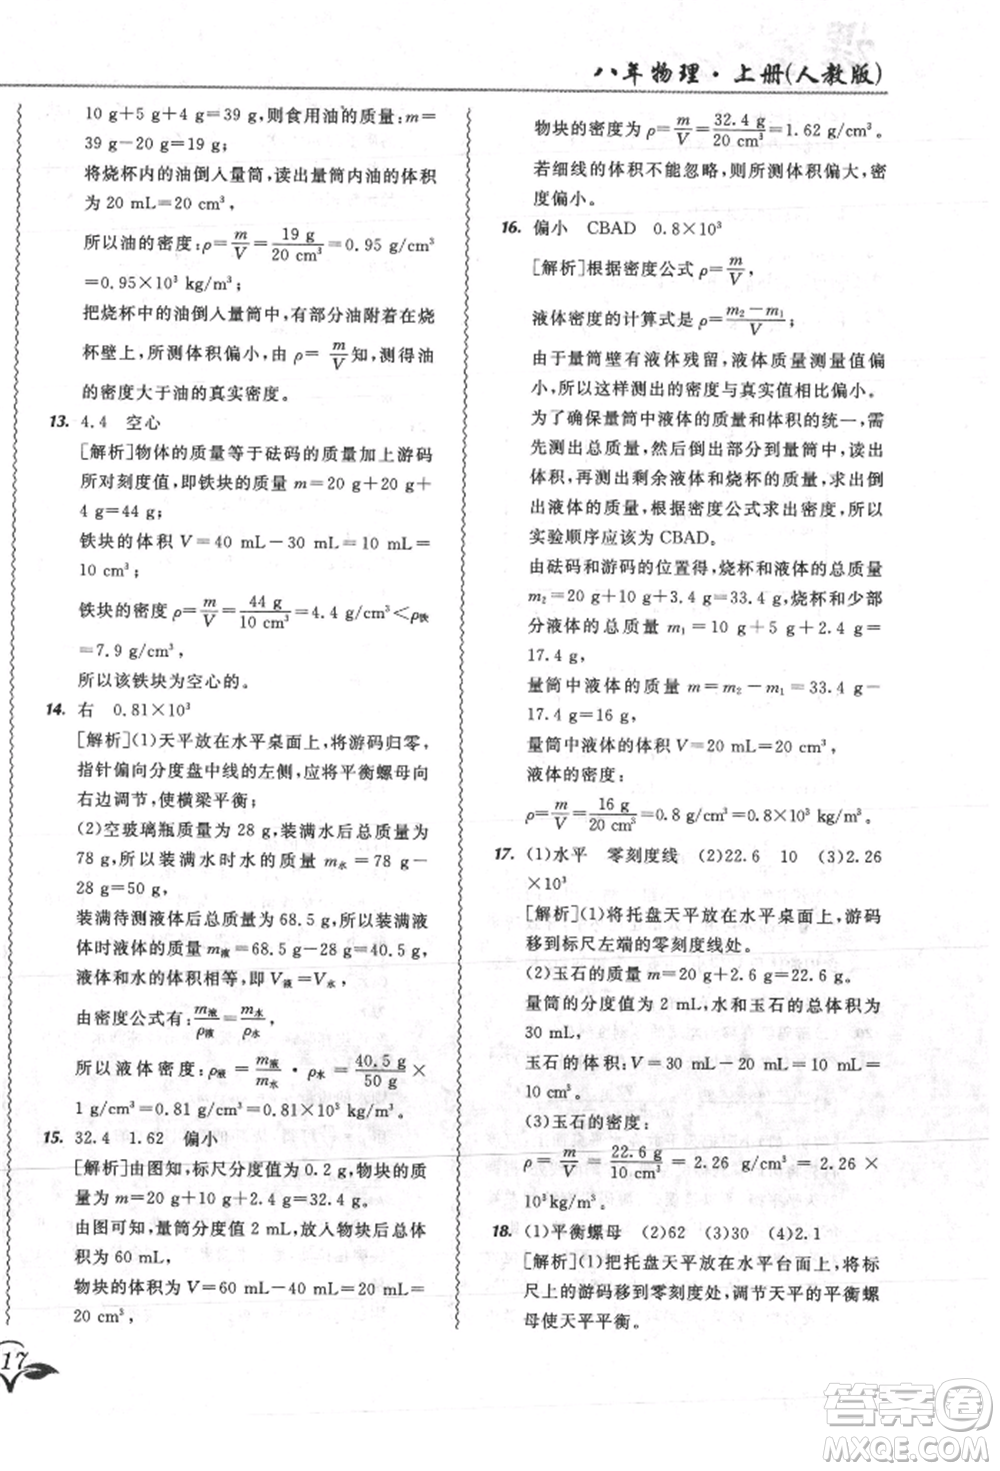 八年物理·上册(人教版)
10 g+5 g+4 g=39 g，则食用油的质量：m=
39 g−20 g=19 g；
将烧杯内的油倒入量筒，读出量筒内油的体积
为 20 mL=20 cm³，
所以油的密度：ρ=m/V=19 g/20 cm³=0.95 g/cm³
=0.95×10³ kg/m³；
把烧杯中的油倒入量筒中，有部分油附着在烧
杯壁上，所测体积偏小，由 ρ=m/V知，测得油
的密度大于油的真实密度。
13. 4.4 空心
[解析]物体的质量等于砝码的质量加上游码
所对刻度值，即铁块的质量 m=20 g+20 g+
4 g=44 g；
铁块的体积 V=40 mL−30 mL=10 mL=
10 cm³；
铁块的密度 ρ=m/V=44 g/10 cm³=4.4 g/cm³＜ρ铁
=7.9 g/cm³，
所以该铁块为空心的。
14. 右 0.81×10³
[解析](1)天平放在水平桌面上，将游码归零，
指针偏向分度盘中线的左侧，应将平衡螺母向
右边调节，使横梁平衡；
(2)空玻璃瓶质量为 28 g，装满水后总质量为
78 g，所以装满水时水的质量：m水=78 g−
28 g=50 g，
装满待测液体后总质量为 68.5 g，所以装满液
体时液体的质量 m液=68.5 g−28 g=40.5 g，
液体和水的体积相等，即 V液=V水，
由密度公式有：m液/ρ液=m水/ρ水，
所以液体密度：ρ液=m液/m水·ρ水=40.5 g/50 g×
1 g/cm³=0.81 g/cm³=0.81×10³ kg/m³。
15. 32.4 1.62 偏小
[解析]由图知，标尺分度值为 0.2 g，物块的质
量 m=20 g+10 g+2.4 g=32.4 g。
由图可知，量筒分度值 2 mL，放入物块后总体
积为 60 mL，
物块的体积为 V=60 mL−40 mL=20 mL=
20 cm³，
17
物块的密度为 ρ=m/V=32.4 g/20 cm³=1.62 g/cm³。
若细线的体积不能忽略，则所测体积偏大，密
度偏小。
16. 偏小 CBAD 0.8×10³
[解析]根据密度公式 ρ=m/V，
液体密度的计算式是 ρ=m₂−m₁/V；
由于量筒壁有液体残留，液体质量测量值偏
小，所以这样测出的密度与真实值相比偏小。
为了确保量筒中液体的质量和体积的统一，需
先测出总质量，然后倒入量筒中一部分，读出
体积，再测出剩余液体和烧杯的总质量，求出倒
出液体的质量，最后根据密度公式求出密度，所以
实验顺序应该为 CBAD。
由砝码和游码的位置可得，烧杯和液体的总质量
m₂=20 g+10 g+3.4 g=33.4 g，烧杯和少部
分液体的总质量 m₁=10 g+5 g+2.4 g=
17.4 g，
量筒中液体的质量 m=m₂−m₁=33.4 g−
17.4 g=16 g，
量筒中液体的体积 V=20 mL=20 cm³，
液体的密度：
ρ=m/V=16 g/20 cm³=0.8 g/cm³=0.8×10³ kg/m³。
17. (1)水平 零刻度线 (2)22.6 10 (3)2.26
×10³
[解析](1)将托盘天平放在水平桌面上，游码
移到标尺左端的零刻度线处。
(2)玉石的质量 m=20 g+2.6 g=22.6 g。
量筒的分度值为 2 mL，水和玉石的总体积为
30 mL，
玉石的体积：V=30 mL−20 mL=10 mL=
10 cm³。
(3)玉石的密度：
ρ=m/V=22.6 g/10 cm³=2.26 g/cm³=2.26×
10³kg/m³。
18. (1)平衡螺母 (2)62 (3)30 (4)2.1
[解析](1)把托盘天平放在水平台面上，将标
尺上的游码移到零刻度处，调节天平的平衡螺
母使天平平衡。
答案圈
MXQE.COM